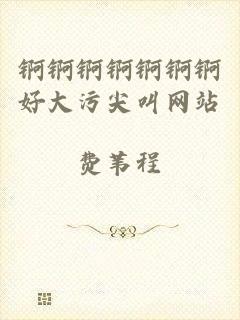 锕锕锕锕锕锕锕
好大污尖叫网站
费苇程